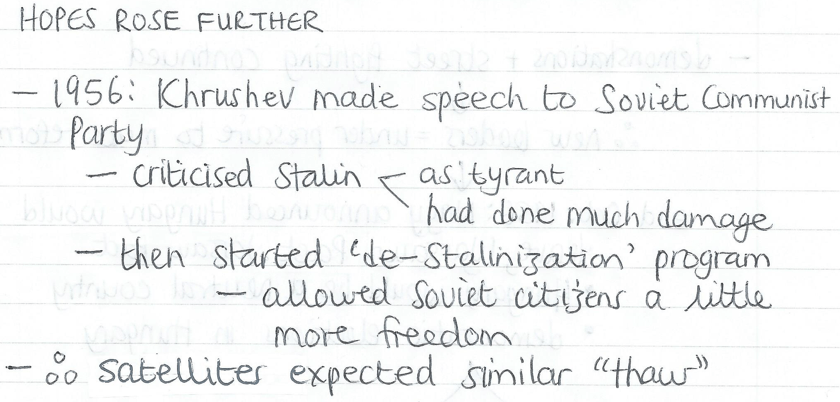 HOPES ROSE FURTHER
– 1956: Khrushev made speech to Soviet Communist
Party
– criticised Stalin < as tyrant
had done much damage
– then started ‘de-Stalinization’ program
– allowed Soviet citizens a little
more freedom
– ∴ satellites expected similar “thaw”